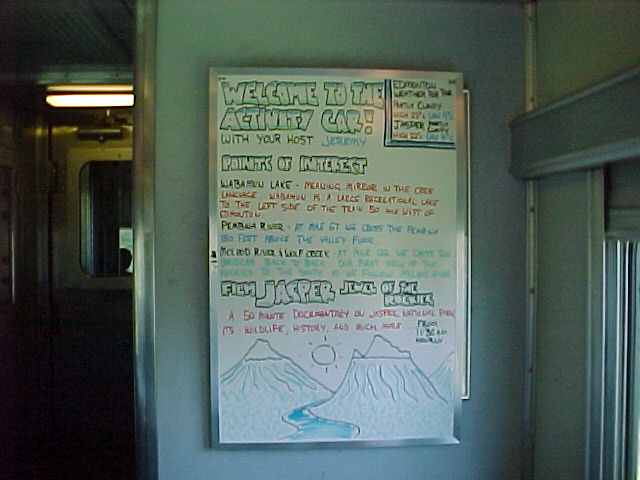 WELCOME TO THE
ACTIVITY CAR!
WITH YOUR HOST JEREMY
EDMONTON
WEATHER FOR TODAY
PARTLY CLOUDY
HIGH 23°C LOW
JASPER PARTLY
CLOUDY
HIGH 22°C LOW
POINTS OF INTEREST
WABAMUN LAKE - MEANING MIRROR IN THE CREE
LANGUAGE. WABAMUN IS A LARGE RECREATIONAL LAKE
TO THE LEFT SIDE OF THE TRAIN 50 WEST OF
EDMONTON.
PEMBINA RIVER - AT MILE 67 WE CROSS THE PEMBINA
180 FEET ABOVE THE VALLEY FLOOR
MCLEOD RIVER & WOLF CREEK - AT MILE WE CROSS TWO
BRIDGES BACK TO BACK. OUR FIRST VIEW OF THE
ROCKIES TO THE SOUTH AS WE FOLLOW MCLEOD RIVER
FILM JASPER JEWEL OF THE
ROCKIES
A 50 MINUTE DOCUMENTARY ON JASPER NATIONAL PARK,
ITS WILDLIFE, HISTORY, AND MUCH MORE. FROM
11:30 AM
HOURLY